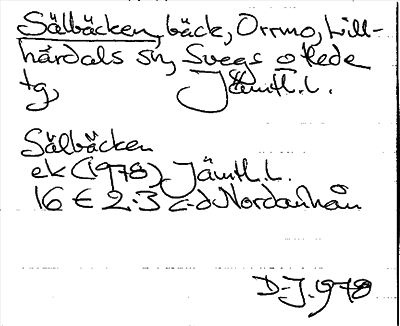 Sälbäcken, bäck, Orrmo, Lill-
härdals sn, Svegs o Hede
tg, Jämtl. l.
Sälbäcken
ek (1978) Jämtl. L.
16 E 2-3 c-d Nordanhån
D-J. 978